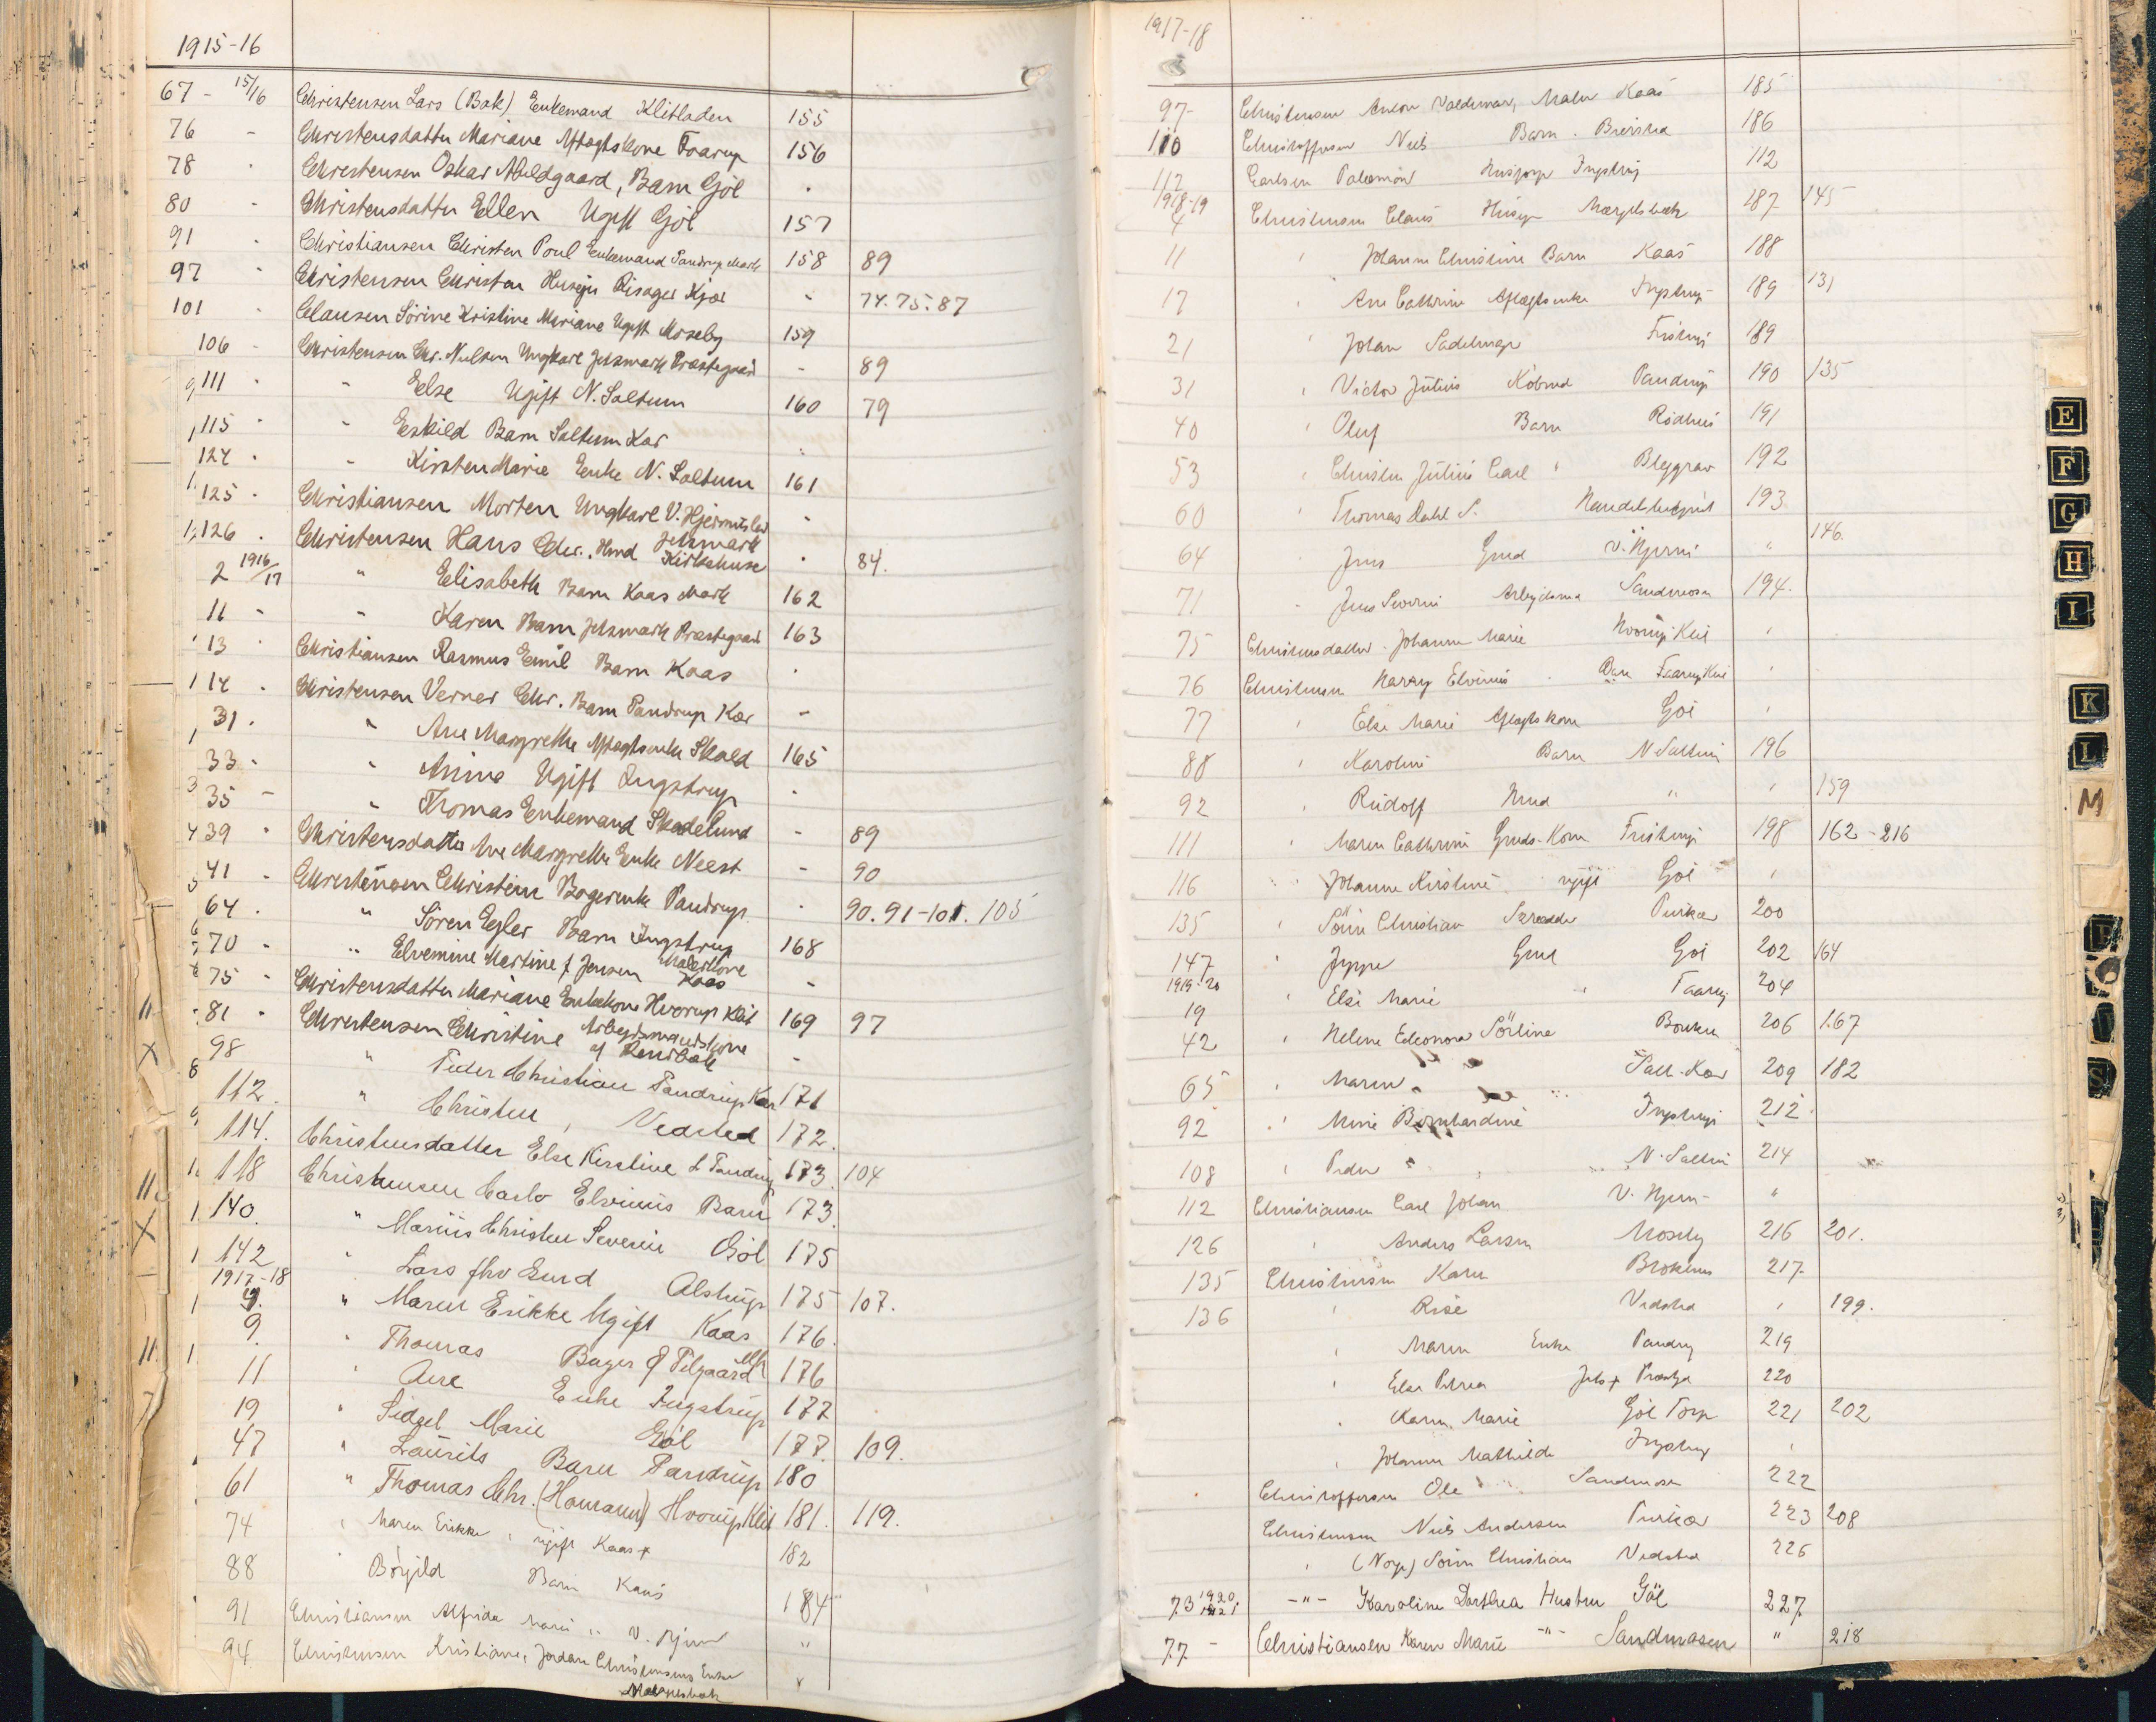 1915-16
67 - 15/16 Christensen Lars (Bak) Enkemand Klitladen 155
76 - Christensdatter Mariane Aftægtskone Faarup 156
78 " Christensen Oskar Muldgaard, Barn Gjöl "
80 - Christensdatter Ellen Ugift Gjöl 157
91 " Christiansen Christen Poul Enkemand Pandrup Mark 158 89
97 " Christensen Christen Husejer Risager Kjær " 74. 75. 87
101 " Clausen Sörine Kristine Mariane Ugift Moseby 159
106 - Christensen Chr. Nielsen Ungkarl Jetsmark Præstegaard - 89
111 " " Else Ugift N. Saltum 160 79
115 " " Eskild Barn Saltum Kær "
124 " - Kirsten Marie Enke N. Saltum 161
125 " Christiansen Morten Ungkarl V. Hjermitslev "
126 " Christensen Hans Chr. Hmd Jetsmark Kirkehuse " 84.
2 1916/17 " Elisabeth Barn Kaas Mark 162
11 - " Karen Barn Jetsmark Præstegaard 163
13 " Christiansen Rasmus Emil Barn Kaas "
14 " Christensen Verner Chr. Barn Pandrup Kær -
31 " " Ane Margrethe Aftægtsenke Skald 165
33 " " Anine Ugift Ingstrup "
35 - " Thomas Enkemand Skadelund - 89
39 " Christensdatter Ane Margrethe Enke Neest - 90
41 - Christensen Christian Bagerenke Pandrup " 90. 91-101. 105
64 " " Sören Egler Barn Ingstrup 168
70 " " Elvemine Martine f. Jensen Malerkone Kaas -
75 " Christensdatter Mariane Enkekone Hvorup Klit 169 97
81 " Christensen Christine Arbejdsmandskone af Rendbæk -
98 " Peder Christian Pandrup Kær 171
112. " Christen, Vedsted 172.
114. Christensdatter Else Kirstine f. Pandrup 173. 104
118 Christensen Carlo Elvinius Barn 173.
140. " Marius Christen Severin Göl 175
142 " Lars fhv Gmd Alstrup 175 107.
1917-18
4. " Maren Erikke Ugift Kaas 176.
9. " Thomas Bager Pilgaard 176
11 " Ane Enke Ingstrup 177
19 " Sidsel Marie Göl 177. 109.
47 " Laurits Barn Pandrup 180
61 " Thomas Chr. (Homann) Hvorup Klit 181. 119.
74 " Maren Erikke, ugift Kaas + 182
88 " Börgild Barn Kaas 184
91 Christiansen Alfrida Marie " V. Hjerm "
94 Christensen Kristiane, Jordan Christensens Enke Mærgelsbæk "
1917-18
97- Christensen Anton Valdemar, Maler Kaas 185
110 Christoffersen Niels Barn. 186
112 Carlsen Palæmon Ingstrup 112
1918-19
4 Christensen Claus Husejer Mergelsbæk 187 145
11 " Johanne Christine Barn Kaas 188
17 " Ane Cathrine Aftægtsenke Ingstrup 189 131
21 " Johan Sadelmager Fristrup 189
31 " Victor Julius Köbmd Pandrup 190 135
40 " Oluf Barn Rödhus 191
53 " Christen Julius Carl " Bleggrav 192
60 " Thomas Dahl S. 193
64 " Jens Gmd V. Hjerm " 146.
71 " Jens Severin Arbejdsmd Sandmosen 194.
75 Christensdatter Johanne Marie Hvorup Klit "
76 Christensen Harry Elvinus Barn Faarup Klit "
77 " Else Marie Aftægtskone Göl "
88 " Karoline Barn N Saltum 196
92 " Rudolf Hmd " " 159
111 " Maren Cathrine Gmds-Kone Fristrup 198 162-216
116 " Johanne Kirstine ugift Göl "
135 " Sörin Christian Purkær 200
147 " Jeppe Gmd Göl 202 164
1919-20
19 " Else Marie " Faarup 204
42 " Helene Eleonora Sörline 206 167
65 " Maren Salt. Kær 209 182
92 " Mine Bernhardine Ingstrup 212
108 " Peder N. Saltum 214
112 Christiansen Carl Johan V. Hjerm - "
126 " Anders Larsen Moseby 216 201.
135 Christensen Karen 217
136 " Rise Vedsted " 199.
" Maren Enke Pandrup 219
" Else Petrea Jets + Præstgd 220
" Karen Marie Göl Torp 221 202
" Johanne Mathilde Ingstrup "
Christoffersen Ole Sandmosen 222
Christensen Niels Andersen Purkær 223 208
" (Norge) Sörin Christian Vedsted 226
73 1920 1921 -"- Karoline Dorthea Hustru Göl 227
77 - Christiansen Karen Marie -"- Sandmosen " 218
E
F
G
H
I
K
L
M
P
S